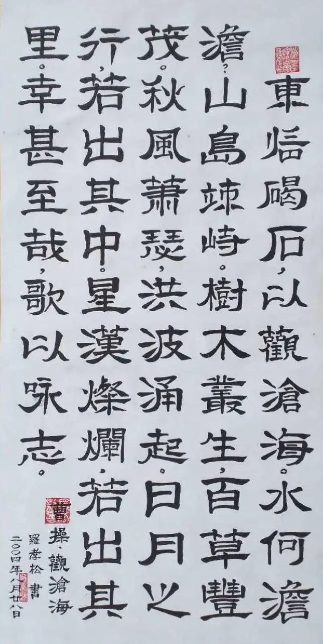 東临碣石,以觀滄海。水何澹
澹,山島竦峙。樹木叢生,百草豐
茂。秋風蕭瑟,洪波涌起。日月之
行,若出其中。星漢燦爛,若出其
里。幸甚至哉,歌以咏志。
曹操·觀滄海
羅孝松書
二〇〇四年八月廿八日